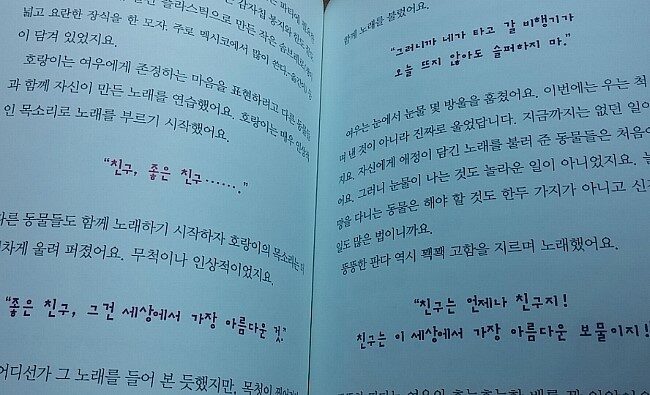 감자칩 봉지와
플라스틱으로 만든 작은 솜브레로
넓고 요란한 장식을 한 모자. 주로 멕시코에서 많이 쓴다
이 담겨 있었지요.
호랑이는 여우에게 존경하는 마음을 표현하려고 다른 동물들
과 함께 자신이 만든 노래를 연습했어요. 호랑이는 매우 인상적
인 목소리로 노래를 부르기 시작했어요.
“친구, 좋은 친구…….”
다른 동물들도 함께 노래하기 시작하자 호랑이의 목소리는 더
차게 울려 퍼졌어요. 무척이나 인상적이었지요.
“좋은 친구, 그건 세상에서 가장 아름다운 것.”
어디선가 그 노래를 들어 본 듯했지만, 목청이
함께 노래를 불렀어요.
“그러니까 네가 타고 갈 비행기가
오늘 뜨지 않아도 슬퍼하지 마.”
여우는 눈에서 눈물 몇 방울을 훔쳤어요. 이번에는 우는 척
며 낸 것이 아니라 진짜로 울었답니다. 지금까지는 없던 일이
지요. 자신에게 애정이 담긴 노래를 불러 준 동물들은 처음이
어요. 그러니 눈물이 나는 것도 놀라운 일이 아니었지요.
망을 다니는 동물은 해야 할 것도 한두 가지가 아니고
일도 많은 법이니까요.
뚱뚱한 판다 역시 꽥꽥 고함을 지르며 노래했어요.
“친구는 언제나 친구지!
친구는 이 세상에서 가장 아름다운 보물이지!